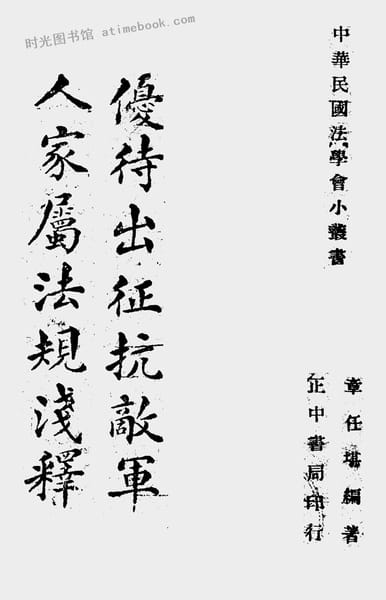 时光图书馆 atimebook.com
中華民國法學會小叢書
優待出征抗敵軍
人家屬法規淺釋
章任堪編著
正中書局印行